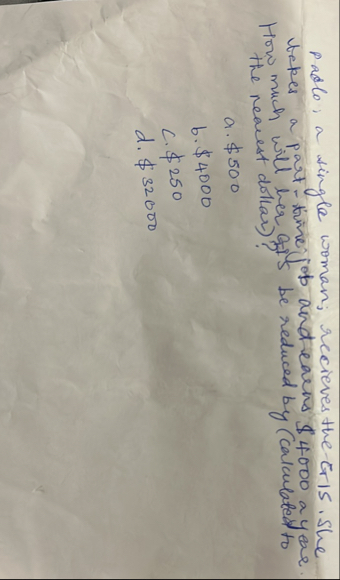 Pablo, a single woman, recieves the GIS. She
takes a part-time job and earns $4000 a year.
How much will her GIS be reduced by (calculated to
the nearest dollar)?
a. $500
b. $4000
c. $250
d. $32000